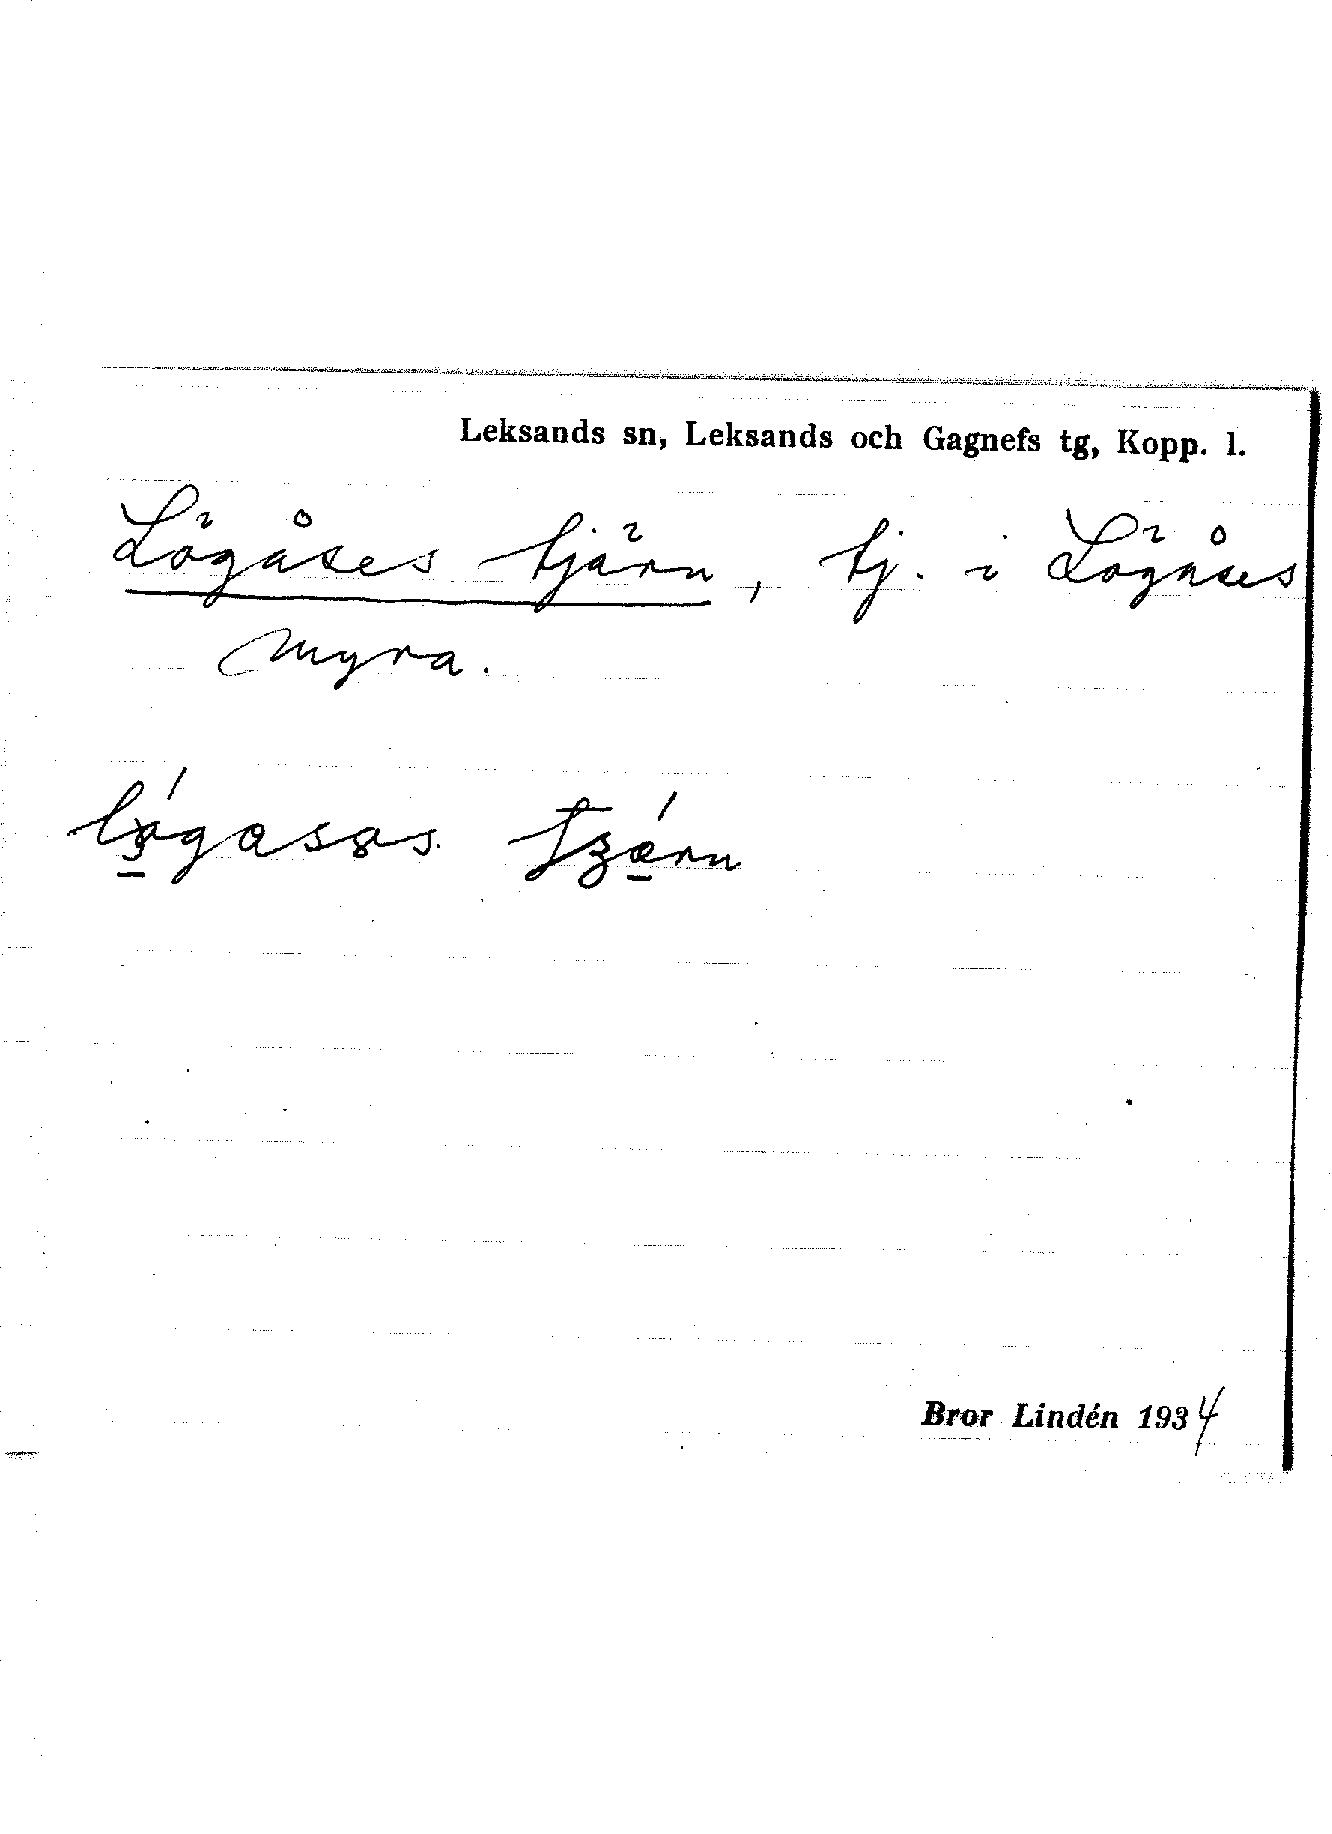 Leksands sn, Leksands och Gagnefs tg, Kopp. l.
Lögåses tjärn, tj. i Lögåses
myra.
Bror Lindén 1934